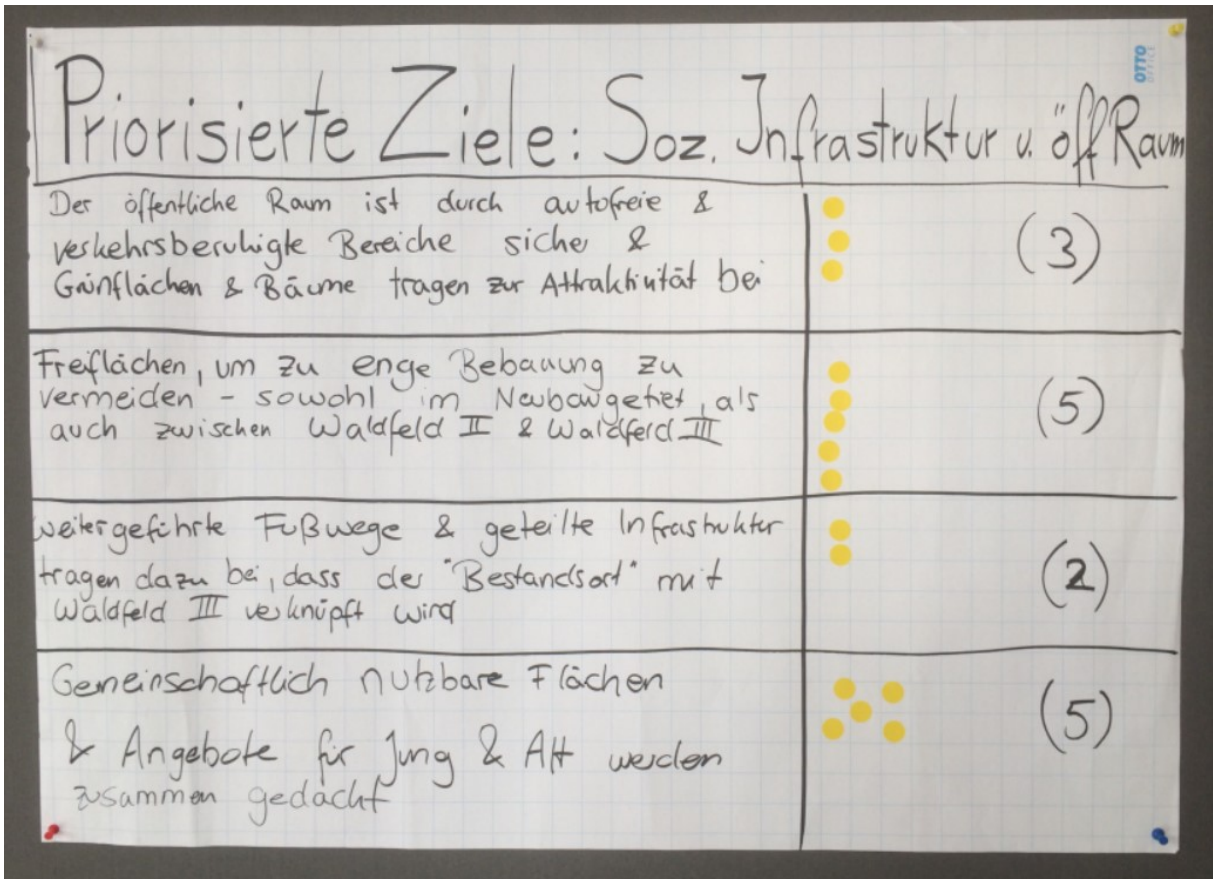 Priorisierte Ziele: Soz. Infrastruktur u. öff Raum
OTTO
OFFICE
Der öffentliche Raum ist durch autofreie &
verkehrsberuhigte Bereiche sicher &
Grünflächen & Bäume tragen zur Attraktivität bei
(3)
Freiflächen, um zu enge Bebauung zu
vermeiden - sowohl im Neubaugebiet, als
auch zwischen Waldfeld II & Waldfeld III
(5)
weitergeführte Fußwege & geteilte Infrastruktur
tragen dazu bei, dass der "Bestandsort" mit
Waldfeld III verknüpft wird
(2)
Gemeinschaftlich nutzbare Flächen
& Angebote für Jung & Alt werden
zusammen gedacht
(5)